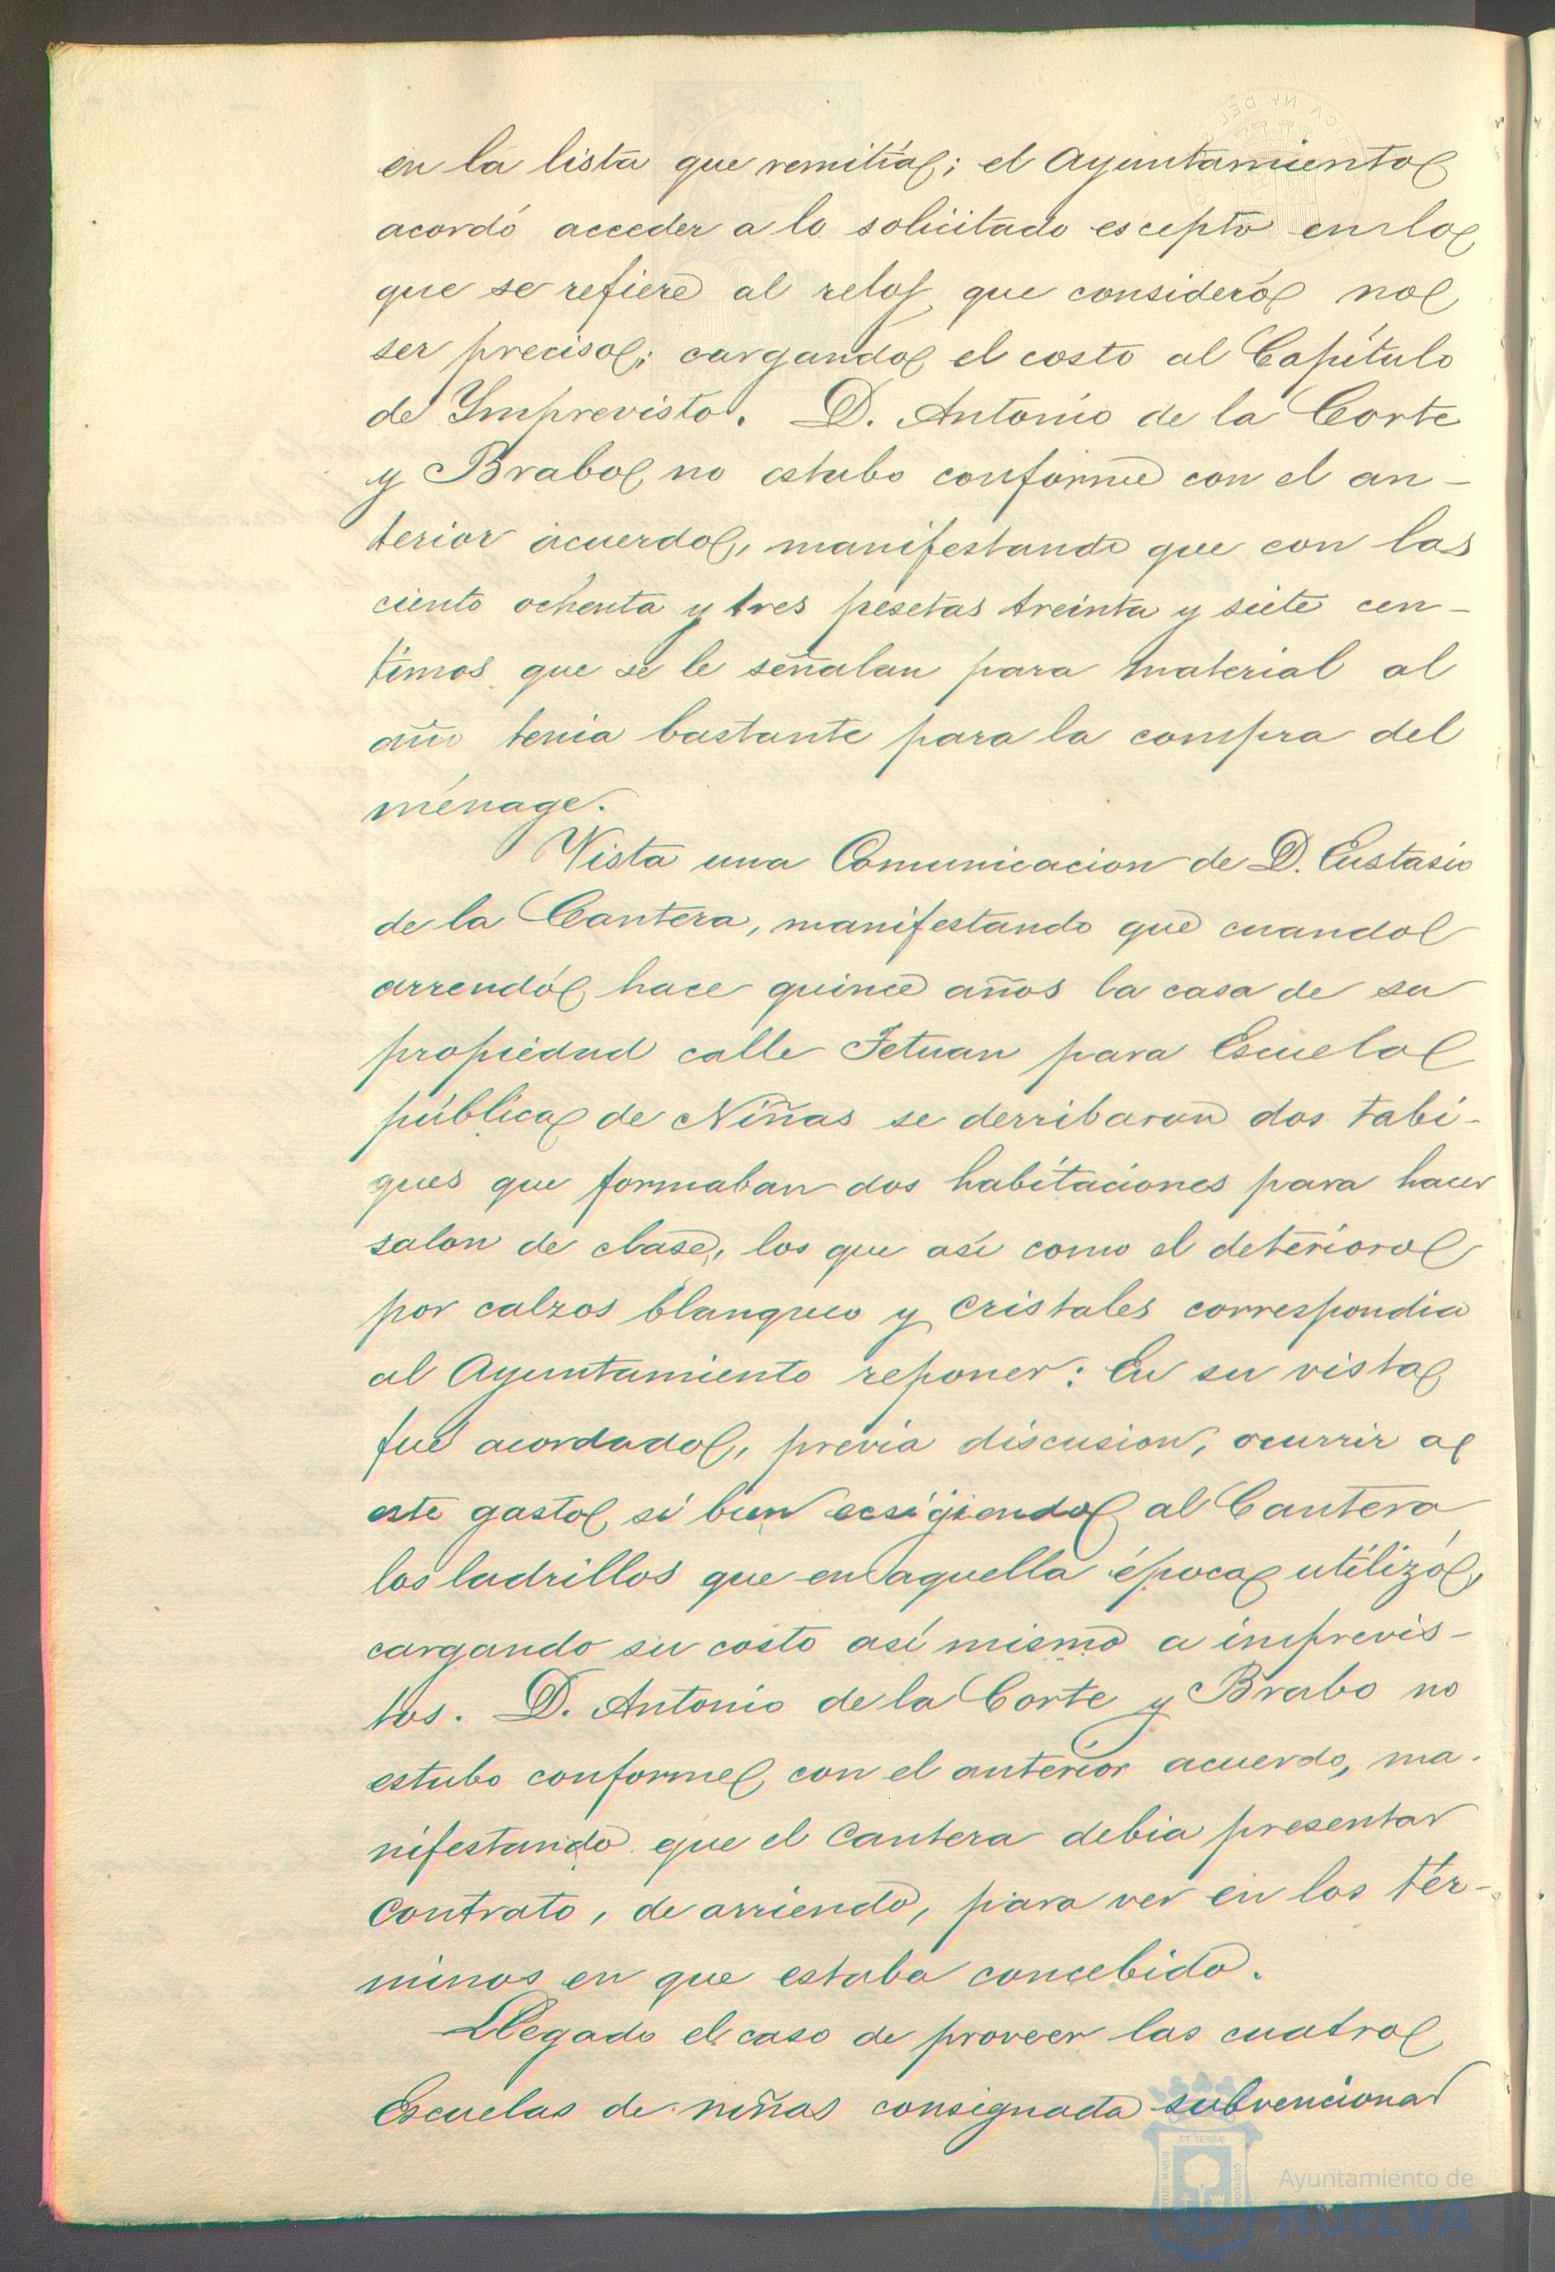 en la lista que remitía; el Ayuntamiento
acordó acceder a lo solicitado escepto en lo
que se refiere al reloj que consideró no
ser preciso; cargando el costo al Capítulo
de Ymprevisto. D. Antonio de la Corte
y Brabo no estubo conforme con el an-
terior acuerdo, manifestando que con las
ciento ochenta y tres pesetas treinta y siete cen-
timos que se le señalan para material al
año tenia bastante para la compra del
ménage.
Vista una Comunicacion de D. Eustasio
de la Cantera, manifestando que cuando
arrendó hace quince años la casa de su
propiedad calle Tetuan para Escuela
pública de Niñas se derribaron dos tabi-
ques que formaban dos habitaciones para hacer
salon de clase, los que así como el deterioro
por calzos blanqueo y cristales correspondia
al Ayuntamiento reponer: En su vista
fué acordado, previa discusion, ocurrir a
este gasto si bien ecsigiendo al Cantera
los ladrillos que en aquella época utilizó,
cargando su costo así mismo a imprevis-
tos. D. Antonio de la Corte y Brabo no
estubo conforme con el anterior acuerdo, ma-
nifestando que el Cantera debia presentar
contrato, de arriendo, para ver en los tér-
minos en que estaba concebido.
Llegado el caso de proveer las cuatro
Escuelas de niñas consignada subvencionar
ET TERRÆ
Ayuntamiento de
HUELVA